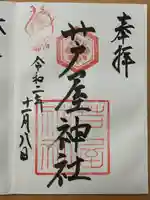 奉拝
芦屋神社
令和二年
十一月八日